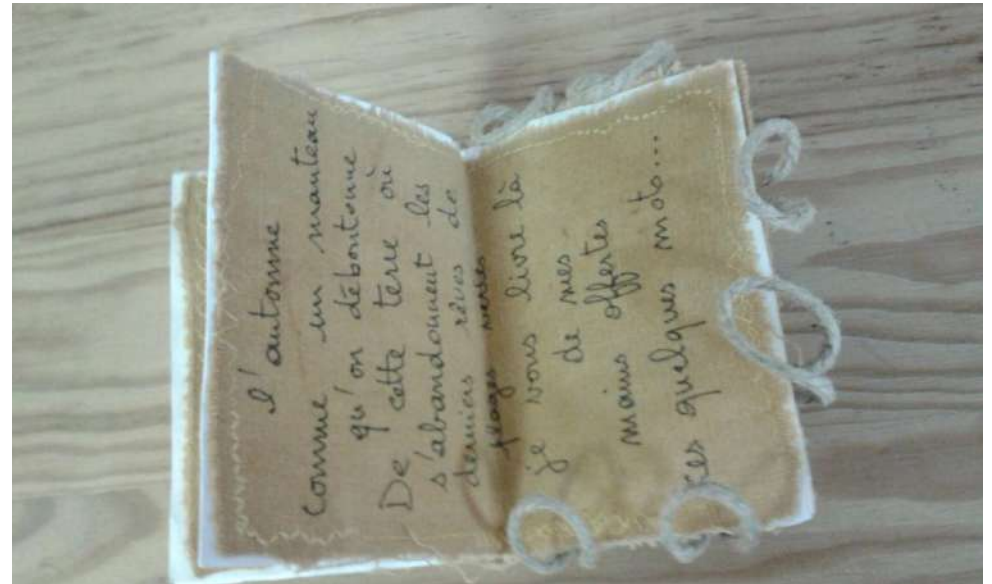 l'automne
comme un manteau
qu'on déboutonne
De cette terre où
s'abandonnent les
derniers rêves de
plages
je vous livre là
de mes
mains offertes
ces quelques mots...